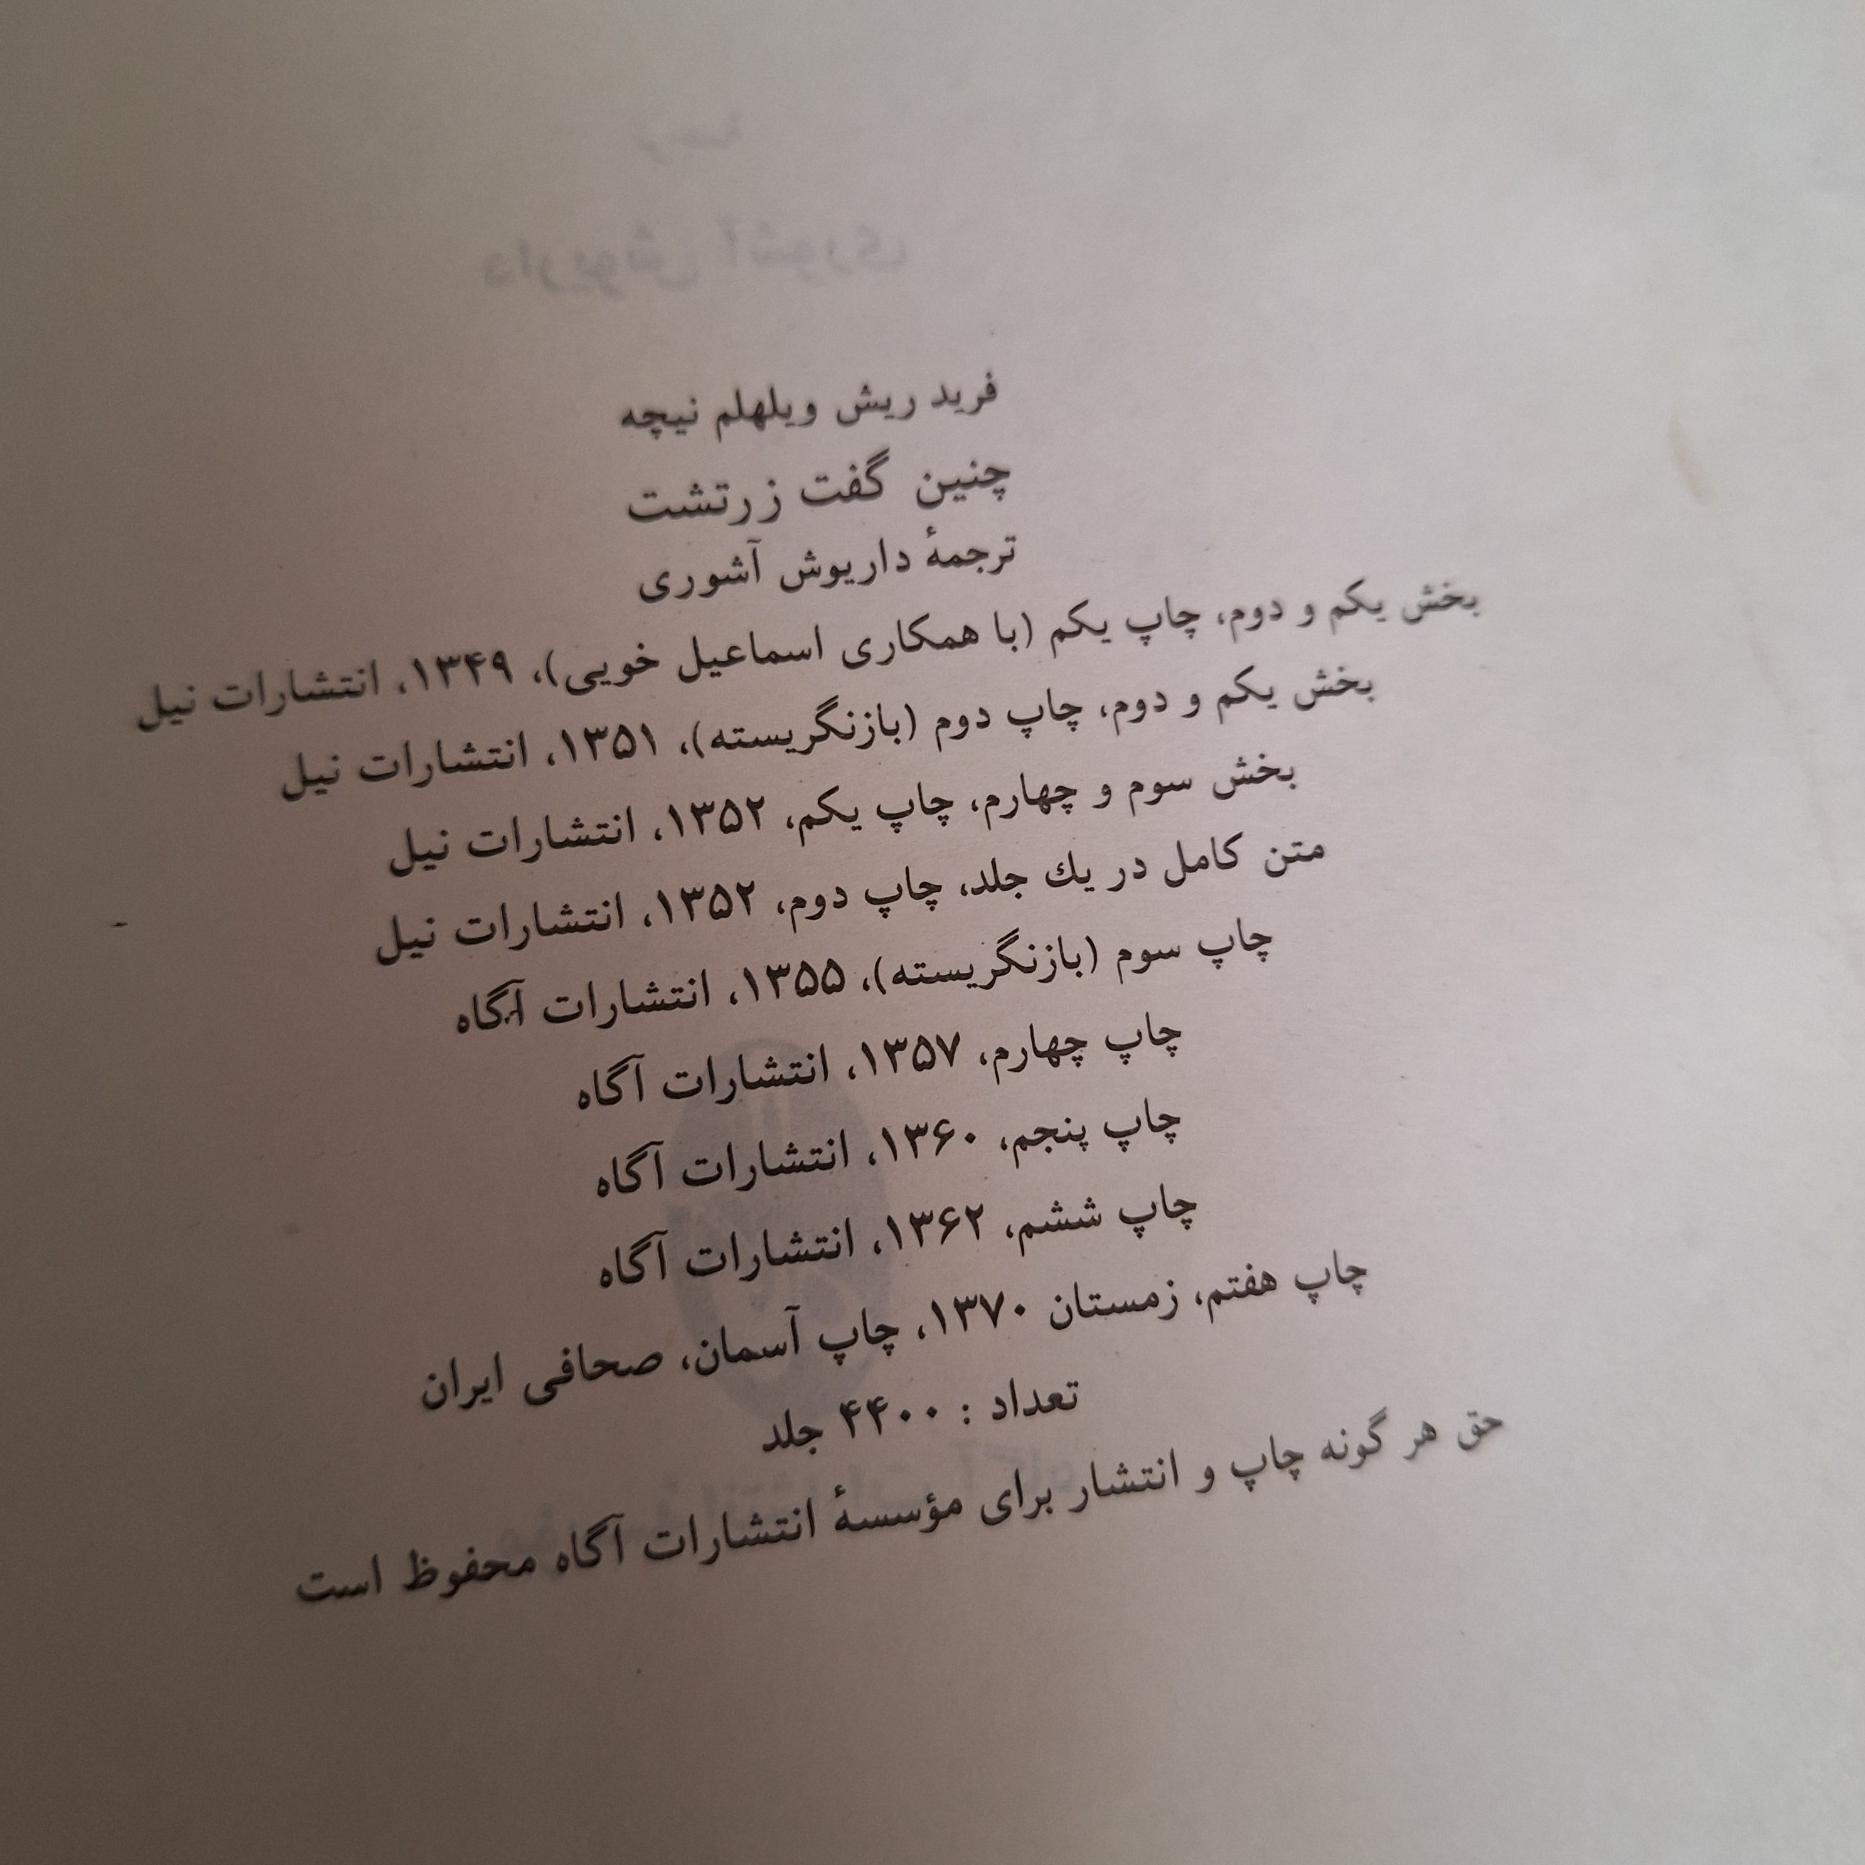 فرید ریش ویلهلم نیچه
چنین گفت زرتشت
ترجمهٔ داریوش آشوری
بخش یکم و دوم، چاپ یکم (با همکاری اسماعیل خویی)، ۱۳۴۹، انتشارات نیل
بخش یکم و دوم، چاپ دوم (بازنگریسته)، ۱۳۵۱، انتشارات نیل
بخش سوم و چهارم، چاپ یکم، ۱۳۵۲، انتشارات نیل
متن کامل در یك جلد، چاپ دوم، ۱۳۵۲، انتشارات نیل
چاپ سوم (بازنگریسته)، ۱۳۵۵، انتشارات آگاه
چاپ چهارم، ۱۳۵۷، انتشارات آگاه
چاپ پنجم، ۱۳۶۰، انتشارات آگاه
چاپ ششم، ۱۳۶۲، انتشارات آگاه
چاپ هفتم، زمستان ۱۳۷۰، چاپ آسمان، صحافی ایران
تعداد : ۴۴۰۰ جلد
حق هر گونه چاپ و انتشار برای مؤسسهٔ انتشارات آگاه محفوظ است